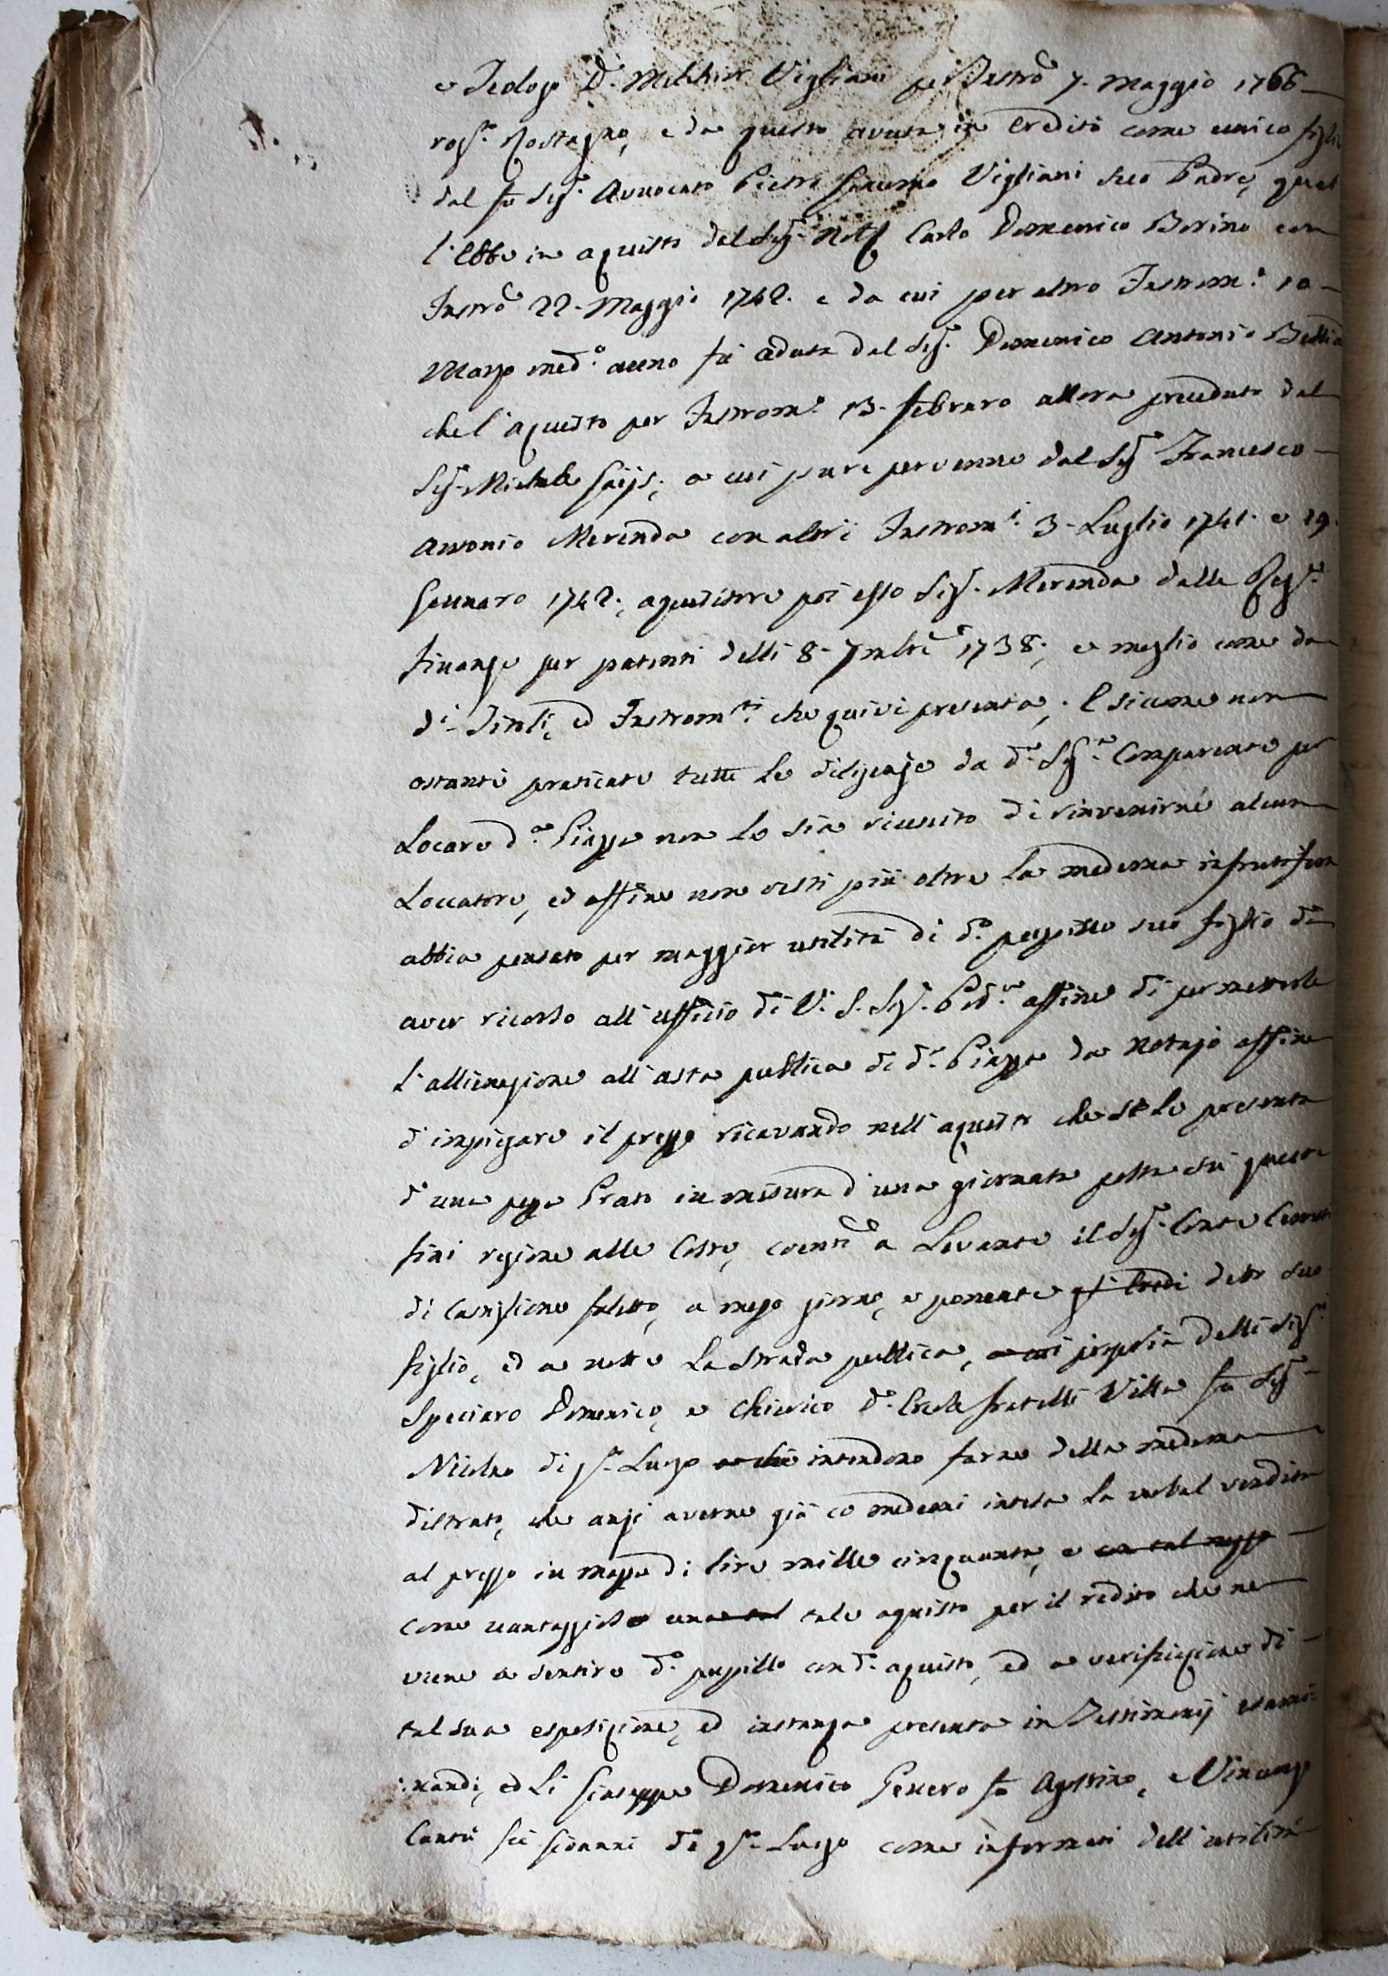 e Teologo D. Melchior Vigliani per Instro 7. Maggio 1766
rog.o Rostagno, e da questo avuta in eredità come unico figlio
dal fu Sig. Avvocato Pietro Giacomo Vigliani suo Padre, qual
l'ebbe in aquisto dal Sig. Not.o Carlo Domenico Borino con
Instro 22. Maggio 1742. e da cui per altro Instrom.o 10
Marzo med.o anno fu aduta dal Sig. Domenico Antonio
che l'aquistò per Instrom.o 13. Febraro allora preceduto dal
Sig. Michele, a cui pure pervenne dal Sig. Francesco
Antonio Merenda con altri Instrom.i 3. Luglio 1741. e 29.
Gennaro 1742., aquisitore poi esso Sig. Merenda dalle Reg.e
Finanze per patenti delli 8. 7mbre 1738., e meglio come da
d.i Titoli, ed Instrom.ti che quivi presenta, e siccome non
ostanti praticate tutte le diligenze da d.a Sig.a Comparente per
Locare d.a Piazza non le sia riuscito di rinvenirne alcun
Loccatore, ed affine non resti più oltre la medema infrutifera
abbia pensato per maggior utilità di d.o pupillo suo figlio di
aver ricorso all'ufficio di V. S. Sig. affine di permetterle
L'allienazione all'asta publica di d.a Piazza da Notajo affine
d'impiegare il prezzo ricavando nell'aquisto che se le presenta
d'una pezza Prato in missura d'una giornata posta su queste
fini regione alle Coste, coerenti a Levante il Sig. Conte
di Castiglione Faletto, a mezo giorno, e ponente gl'Eredi detto suo
figlio, ed a notte La Strada publica, propria delli Sig.ri
Speciaro Domenico, e Chierico D. fratelli Villa fu Sig.
Nicolao di q.to Luogo intendono farne della medema
distratto, che anzi averne già co' medemi intesa la verbal vendita
al prezzo in mazza di lire mille cinquanta, e con tal mezzo
come vantaggioso tale aquisto per il reddito che ne
viene a sentire d.o pupillo con d.o aquisto, ed a verificazione di
tal sua esposizione, ed instanza presenta in Testimonij esami-
nandi, ed Li Giuseppe Domenico Genero fu Agostino, e Vincenzo
Cantù fu Gioanni di q.to Luogo come informati dell'utilità